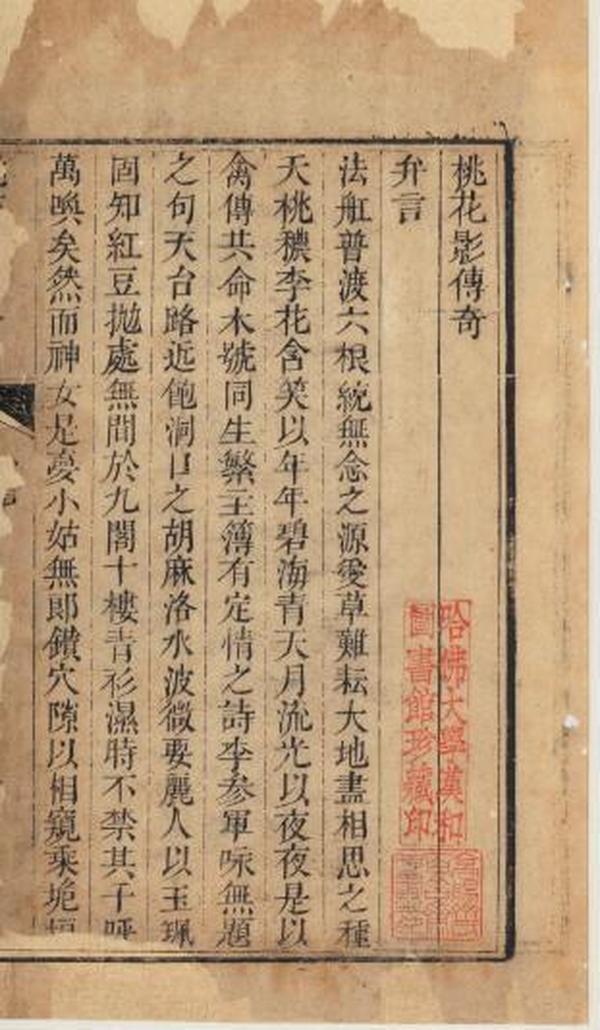 桃花影傳奇
弁言
法航普渡六根統無念之源愛草難耘大地盡相思之種
夭桃穠李花含笑以年年碧海青天月流光以夜夜是以
禽傳共命木號同生繁主簿有定情之詩李參軍咏無題
之句天台路近飽洞口之胡麻洛水波微要麗人以玉珮
固知紅豆拋處無間於九閣十樓青衫濕時不禁其千呼
萬喚矣然而神女是夢小姑無郎鑽穴隙以相窺乘垝垣
哈佛大學漢和
圖書館珍藏印